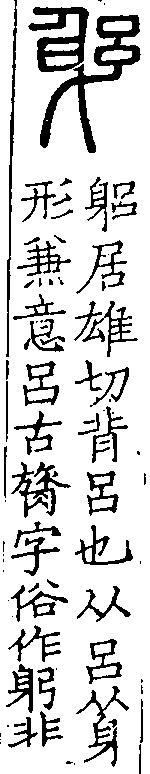 躳
躳居雄切背呂也从呂从身
形兼意呂古膂字俗作躬非